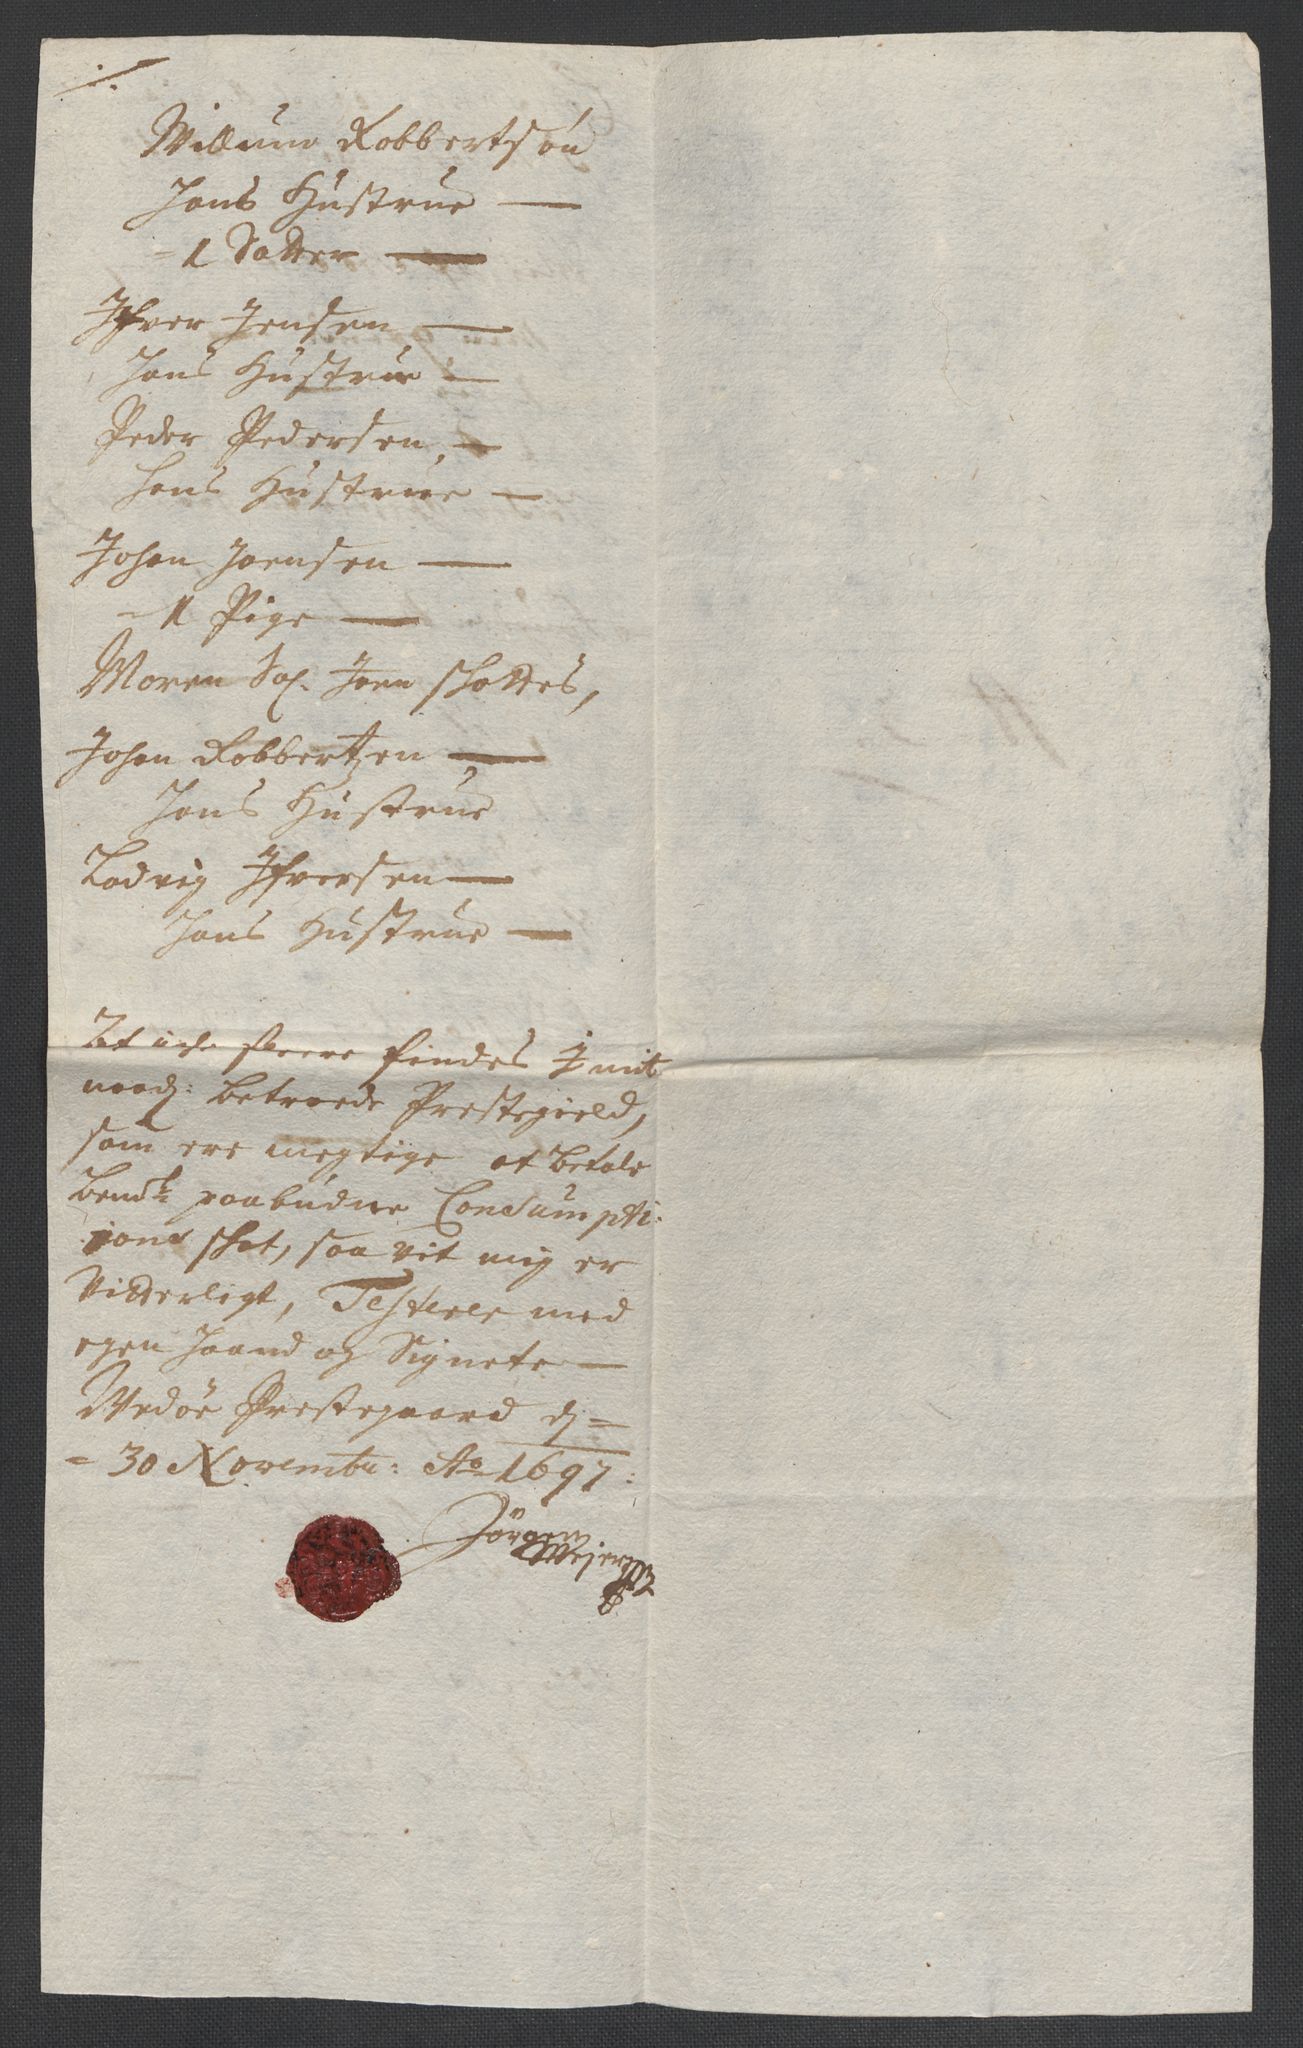 Willum Robbertsøn
Hans Hustrue —
- 1 Datter —
Ifver Jensen —
Hans Hustrue —
Peder Pedersen, —
Hans Hustrue —
Johan Joensen —
- 1 Pige —
Maren Sal. Joen skottes,
Johan Robbertzen —
Hans Hustrue
Lodvig Ifversen —
Hans Hustrue —
At iche fleere findes I mit
naad: betroede Prestegield,
som ere megtige at betale
bemte paabudne Consumpti-
ions skat, saa vit mig er
Vitterligt, Testerer med
egen Haand og Signete —
Wedøe Prestegaard d —
- 30 Novembr: Ao 1697:
Jørgen